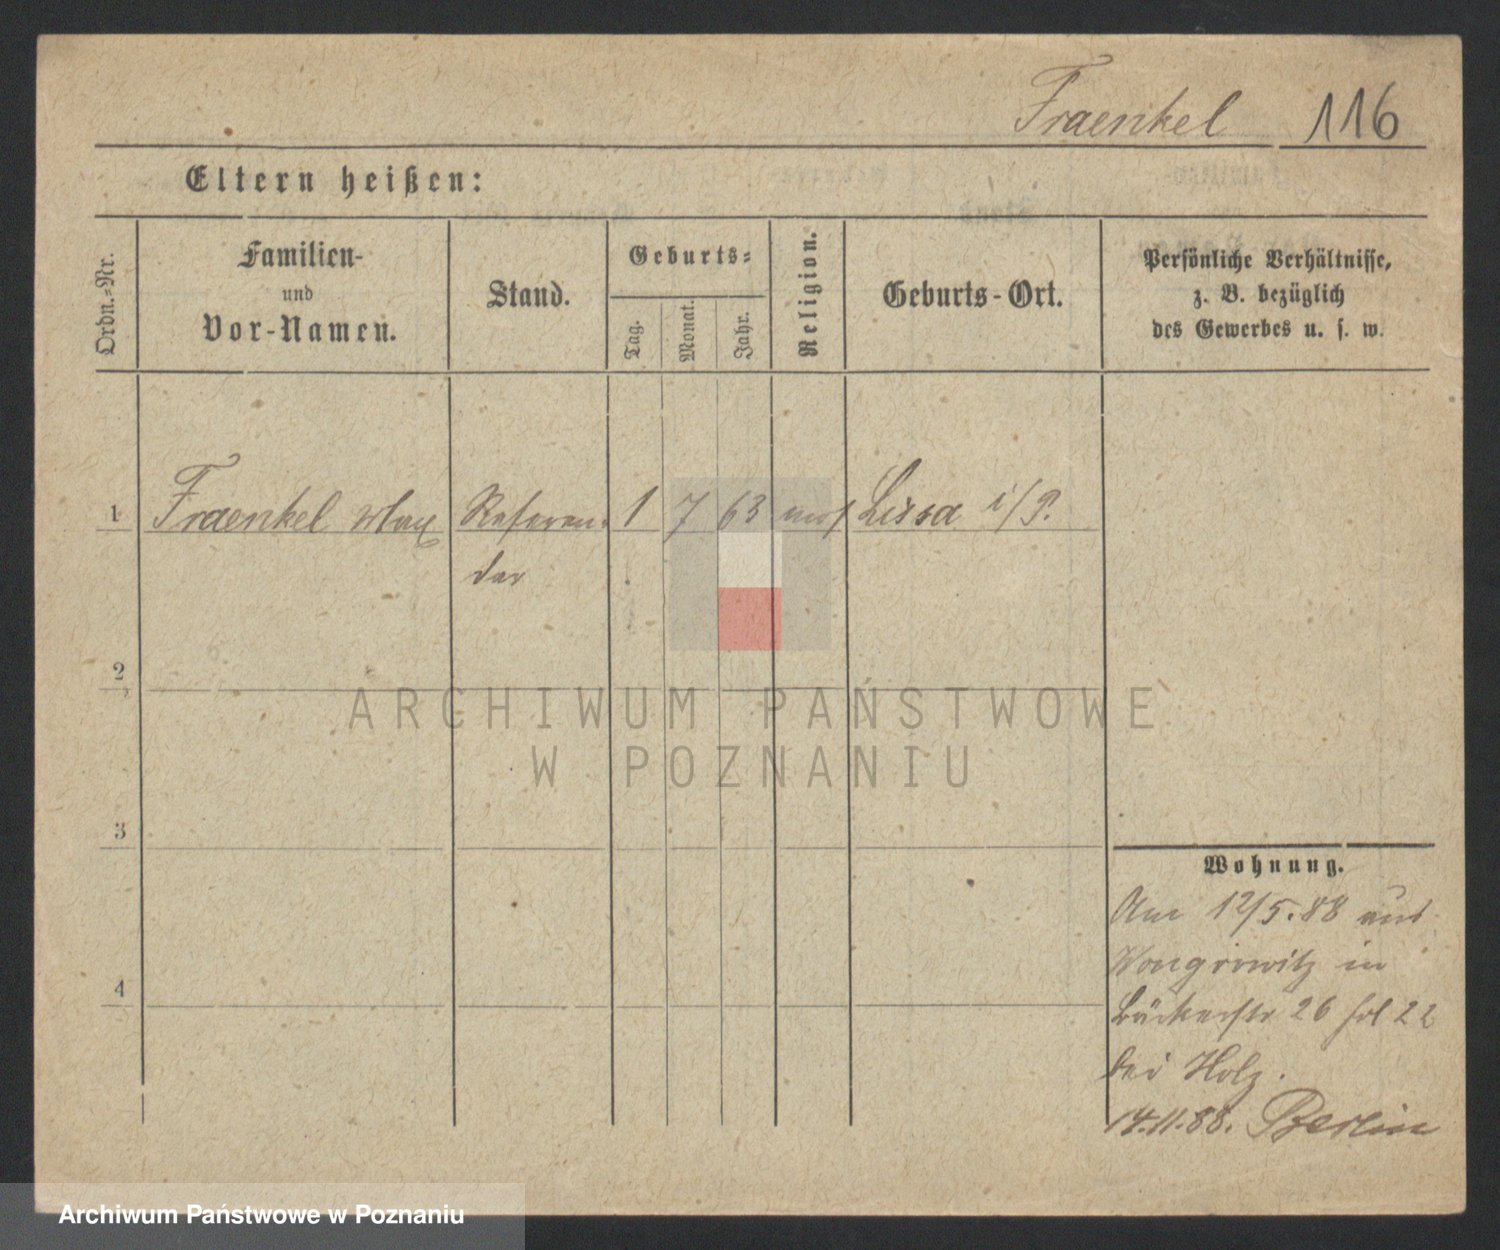 Fraenkel 116
Eltern heißen:
Ordn.-Nr.
Familien-
und
Vor-Namen.
Stand.
Geburts-
Tag.
Monat.
Jahr.
Religion.
Geburts-Ort.
Persönliche Verhältnisse,
z. B. bezüglich
des Gewerbes u. s. w.
1 Fraenkel Max Referen- 1 7 63 mos Lissa i/P.
dar
2
3
4
Wohnung.
Am 12/5.88 aus
Wongrowitz in
Bäckerstr 26 fol 22
bei Holz.
14.11.88. Berlin
ARCHIWUM PAŃSTWOWE
W POZNANIU
Archiwum Państwowe w Poznaniu